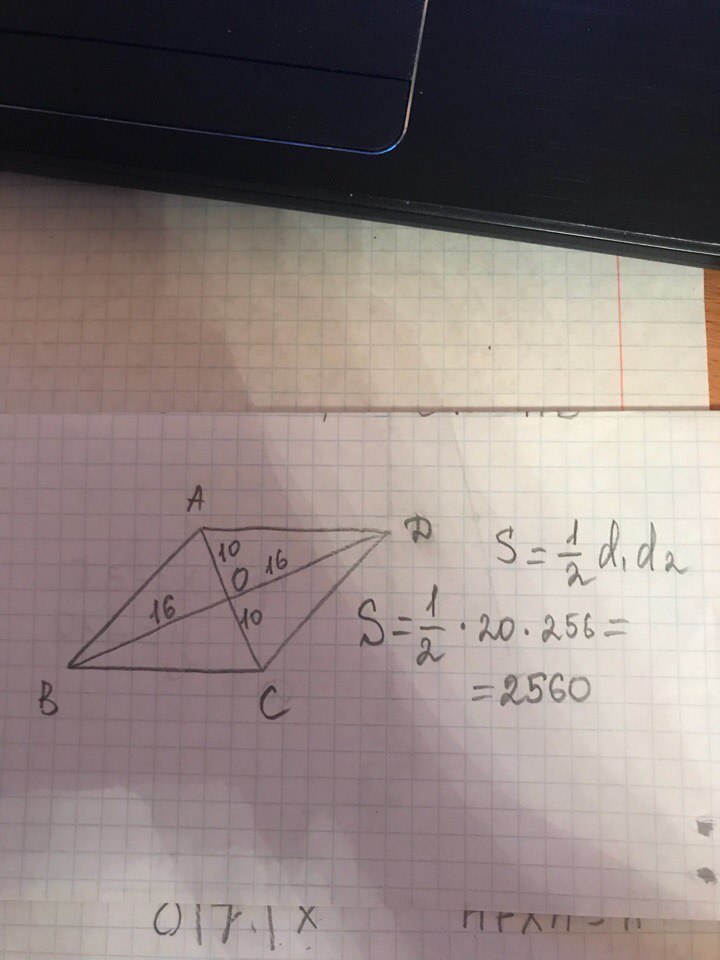 A
D
10
16
O
16
10
B
C
S = 1/2 d₁ d₂
S = 1/2 · 20 · 256 =
= 2560